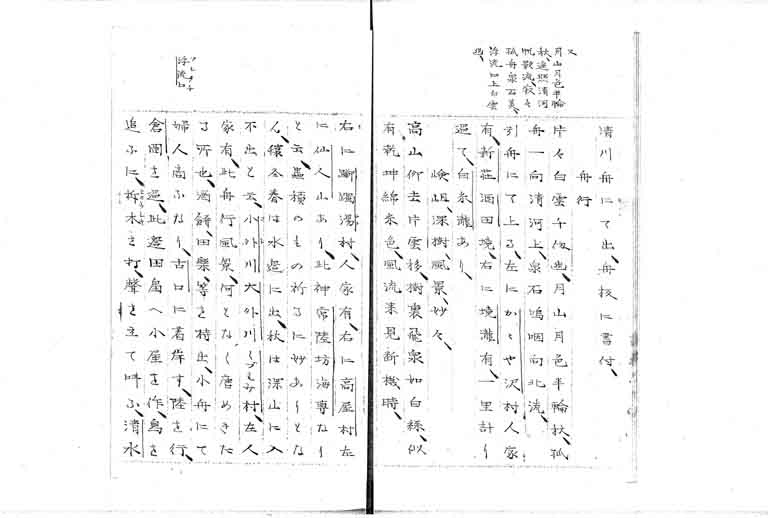 又
月山月色半輪
秋遥照清河
帆影流寂々
孤舟泉石美
浮流口上白雲
幽
清川舟にて出、舟板に書付、
舟行
片々白雲千仭幽、月山月色半輪秋、孤
舟一向清河上、泉石嗚咽向北流、
引舟にて上る、左にかくや沢村人家
有、新荘酒田境、右に境瀧有、一里計り
過て、白糸瀧あり、
嶮岨、深樹、風景、妙々、
高山仰去片雲移、樹裏飛泉如白絲、似
有乾坤綿糸色、風流来見断機時、
浮流口
右に蹰躅湯村、人家有、右に高屋村、左
に仙人山あり、此神常陸坊海専なり
と云、蟲積のもの祈るに妙ありとな
ん、穣冬春は水辺に出、秋は深山に入
不出と云、小外川大外川くづみ村、左人
家有、此舟行風景何となく唐めきた
る所也、酒餅田楽等を持出、小舟にて
婦人商ふなり、古口に着岸す、陸を行
倉岡を過、此邊田畠へ小屋を作、鳥を
追ふに、柝木を打、聲を立て叫ふ、清水